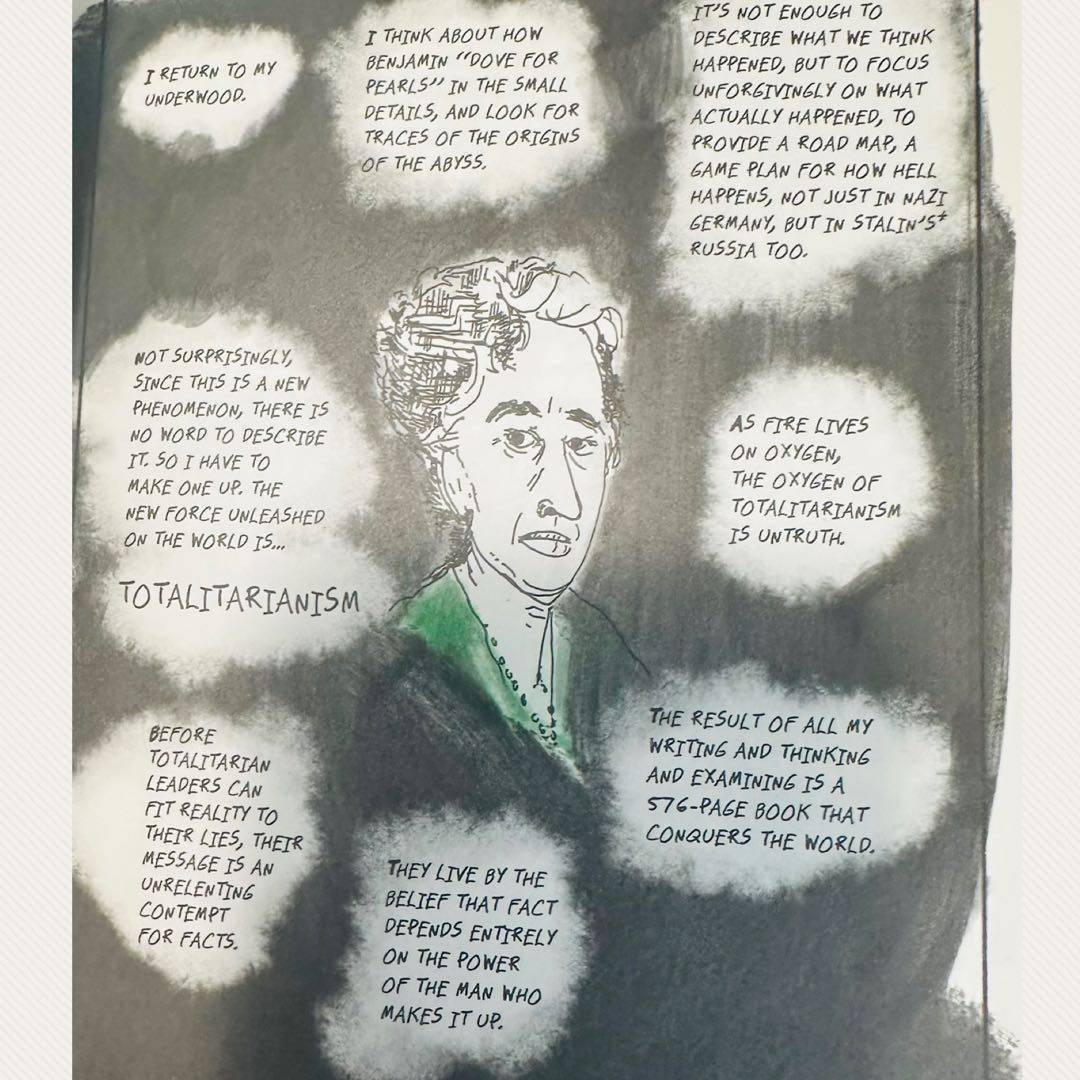 I RETURN TO MY
UNDERWOOD.
I THINK ABOUT HOW
BENJAMIN "DOVE FOR
PEARLS" IN THE SMALL
DETAILS, AND LOOK FOR
TRACES OF THE ORIGINS
OF THE ABYSS.
IT'S NOT ENOUGH TO
DESCRIBE WHAT WE THINK
HAPPENED, BUT TO FOCUS
UNFORGIVINGLY ON WHAT
ACTUALLY HAPPENED, TO
PROVIDE A ROAD MAP, A
GAME PLAN FOR HOW HELL
HAPPENS, NOT JUST IN NAZI
GERMANY, BUT IN STALIN'S‡
RUSSIA TOO.
NOT SURPRISINGLY,
SINCE THIS IS A NEW
PHENOMENON, THERE IS
NO WORD TO DESCRIBE
IT. SO I HAVE TO
MAKE ONE UP. THE
NEW FORCE UNLEASHED
ON THE WORLD IS...
TOTALITARIANISM
AS FIRE LIVES
ON OXYGEN,
THE OXYGEN OF
TOTALITARIANISM
IS UNTRUTH.
BEFORE
TOTALITARIAN
LEADERS CAN
FIT REALITY TO
THEIR LIES, THEIR
MESSAGE IS AN
UNRELENTING
CONTEMPT
FOR FACTS.
THEY LIVE BY THE
BELIEF THAT FACT
DEPENDS ENTIRELY
ON THE POWER
OF THE MAN WHO
MAKES IT UP.
THE RESULT OF ALL MY
WRITING AND THINKING
AND EXAMINING IS A
576-PAGE BOOK THAT
CONQUERS THE WORLD.